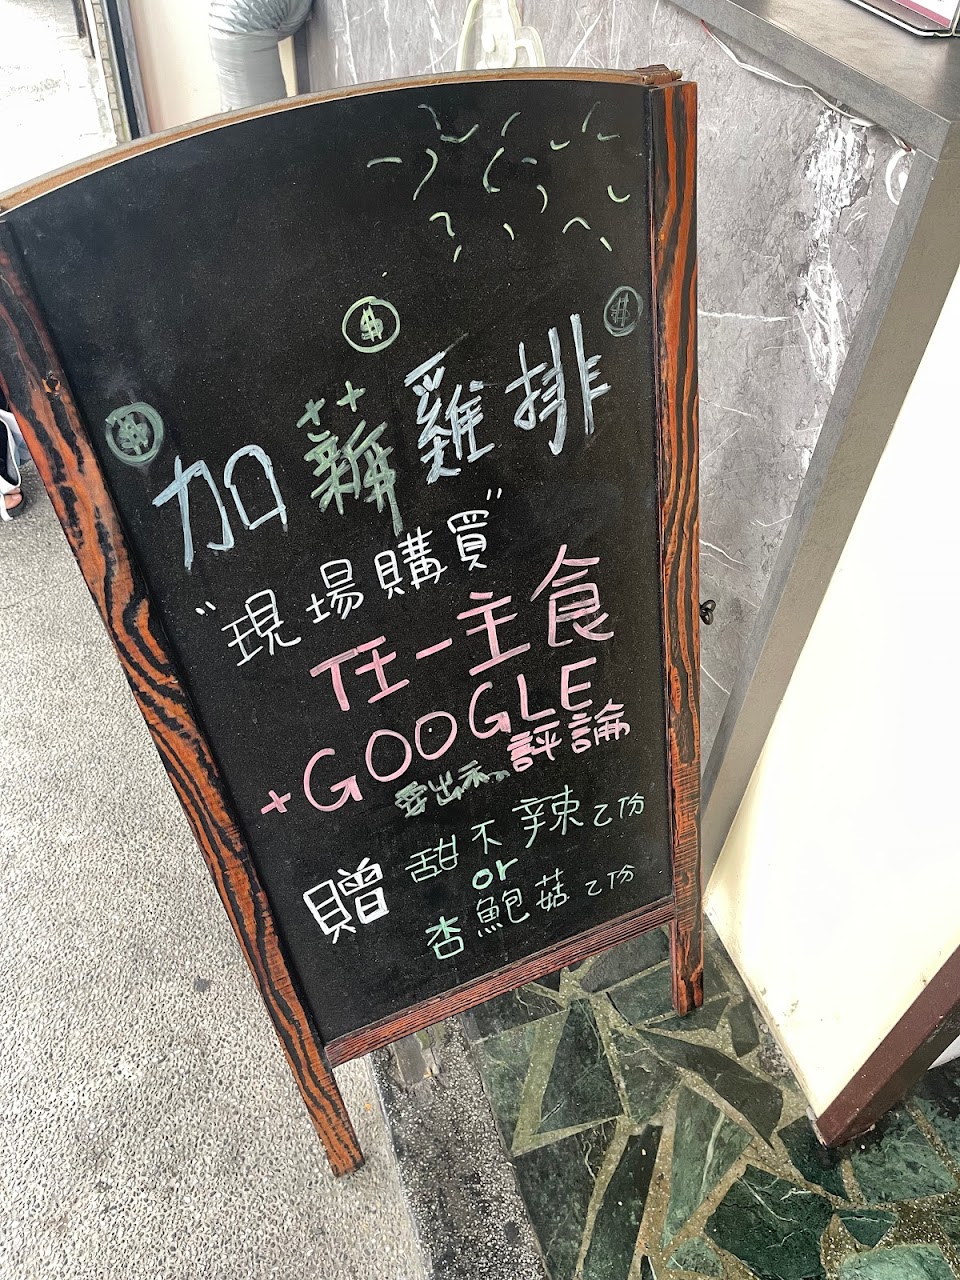 加薪雞排
"現場購買"
任一主食
+GOOGLE
要出示 評論
贈 甜不辣乙份
or
杏鮑菇乙份